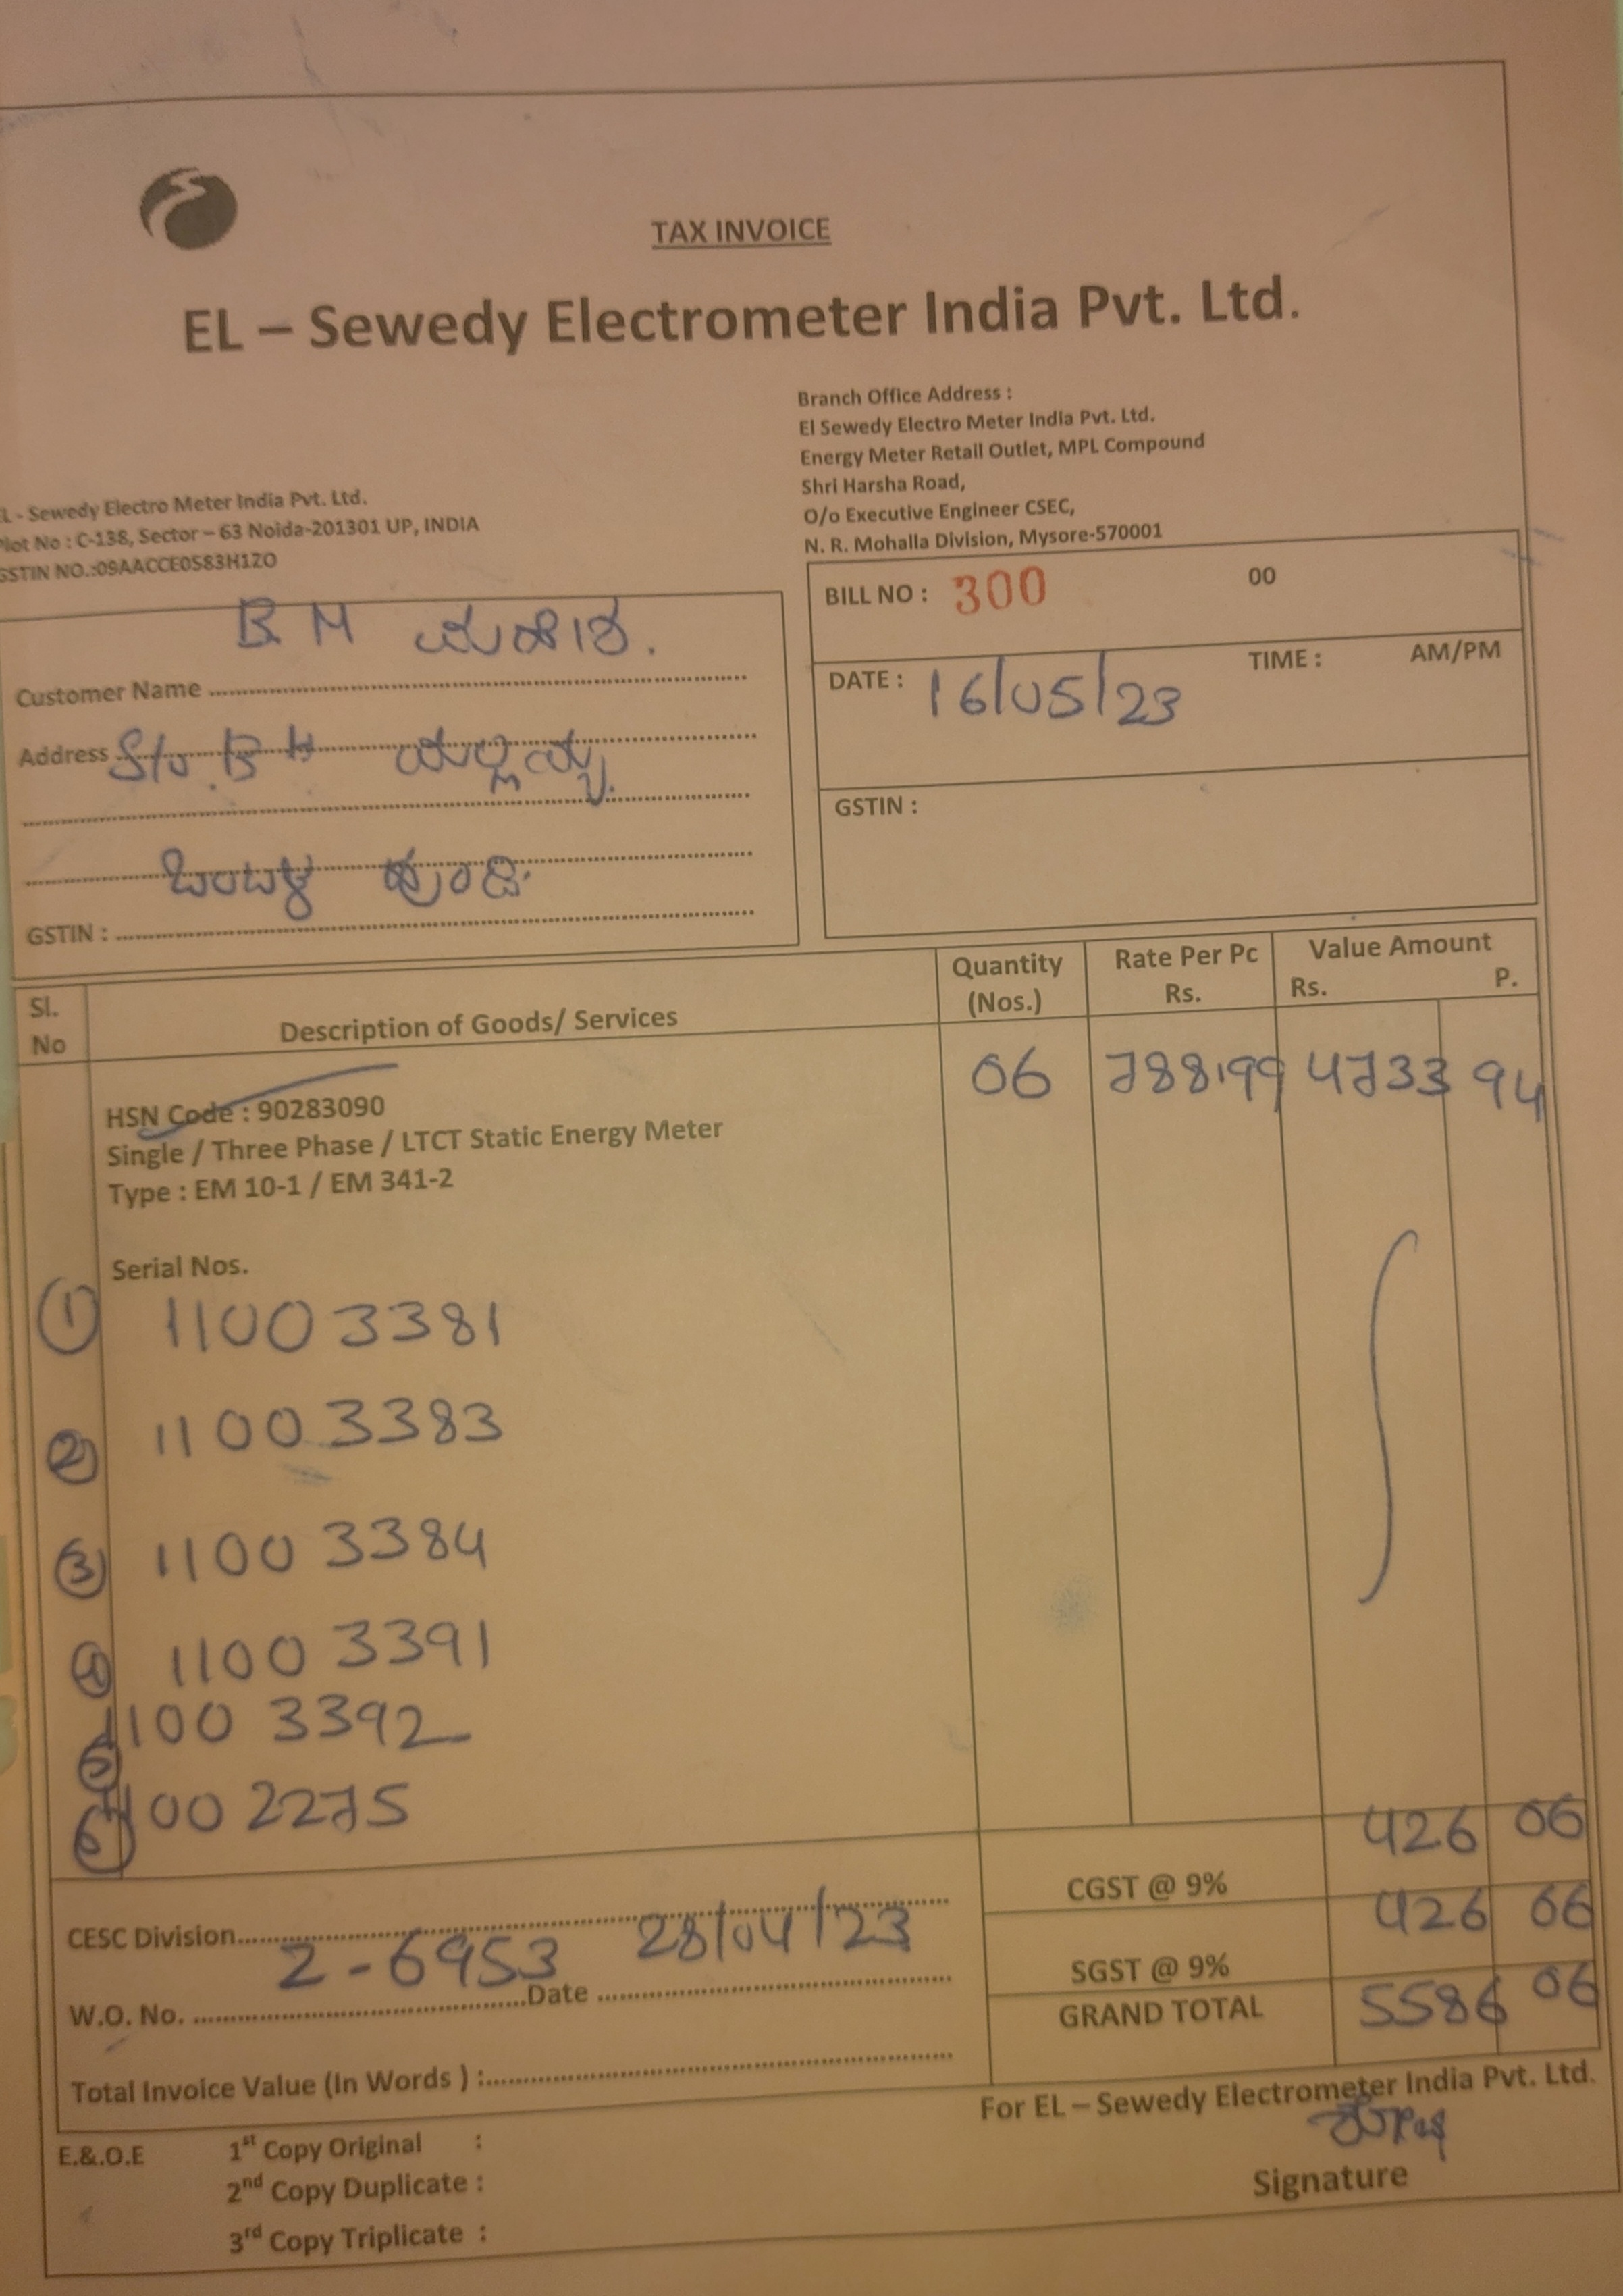 TAX INVOICE
EL – Sewedy Electrometer India Pvt. Ltd.
EL - Sewedy Electro Meter India Pvt. Ltd.
Plot No : C-138, Sector – 63 Noida-201301 UP, INDIA
GSTIN NO.:09AACCE0583H1ZO
Branch Office Address :
El Sewedy Electro Meter India Pvt. Ltd.
Energy Meter Retail Outlet, MPL Compound
Shri Harsha Road,
O/o Executive Engineer CSEC,
N. R. Mohalla Division, Mysore-570001
Customer Name B M
Address S/o. B H ಮಲ್ಲಯ್ಯ.
GSTIN :
BILL NO : 300 00
DATE : 16/05/23 TIME : AM/PM
GSTIN :
Sl. No Description of Goods/ Services Quantity (Nos.) Rate Per Pc Rs. Value Amount Rs. P.
HSN Code : 90283090 06 788.99 4733 94
Single / Three Phase / LTCT Static Energy Meter
Type : EM 10-1 / EM 341-2
Serial Nos.
1 11003381
2 11003383
3 11003384
4 11003391
5 11003392
6 11002275
CGST @ 9% 426 06
SGST @ 9% 426 06
GRAND TOTAL 5586 06
CESC Division
W.O. No. 2-6953 Date 28/04/23
Total Invoice Value (In Words ) :
For EL – Sewedy Electrometer India Pvt. Ltd.
Signature
E.&.O.E 1st Copy Original :
2nd Copy Duplicate :
3rd Copy Triplicate :